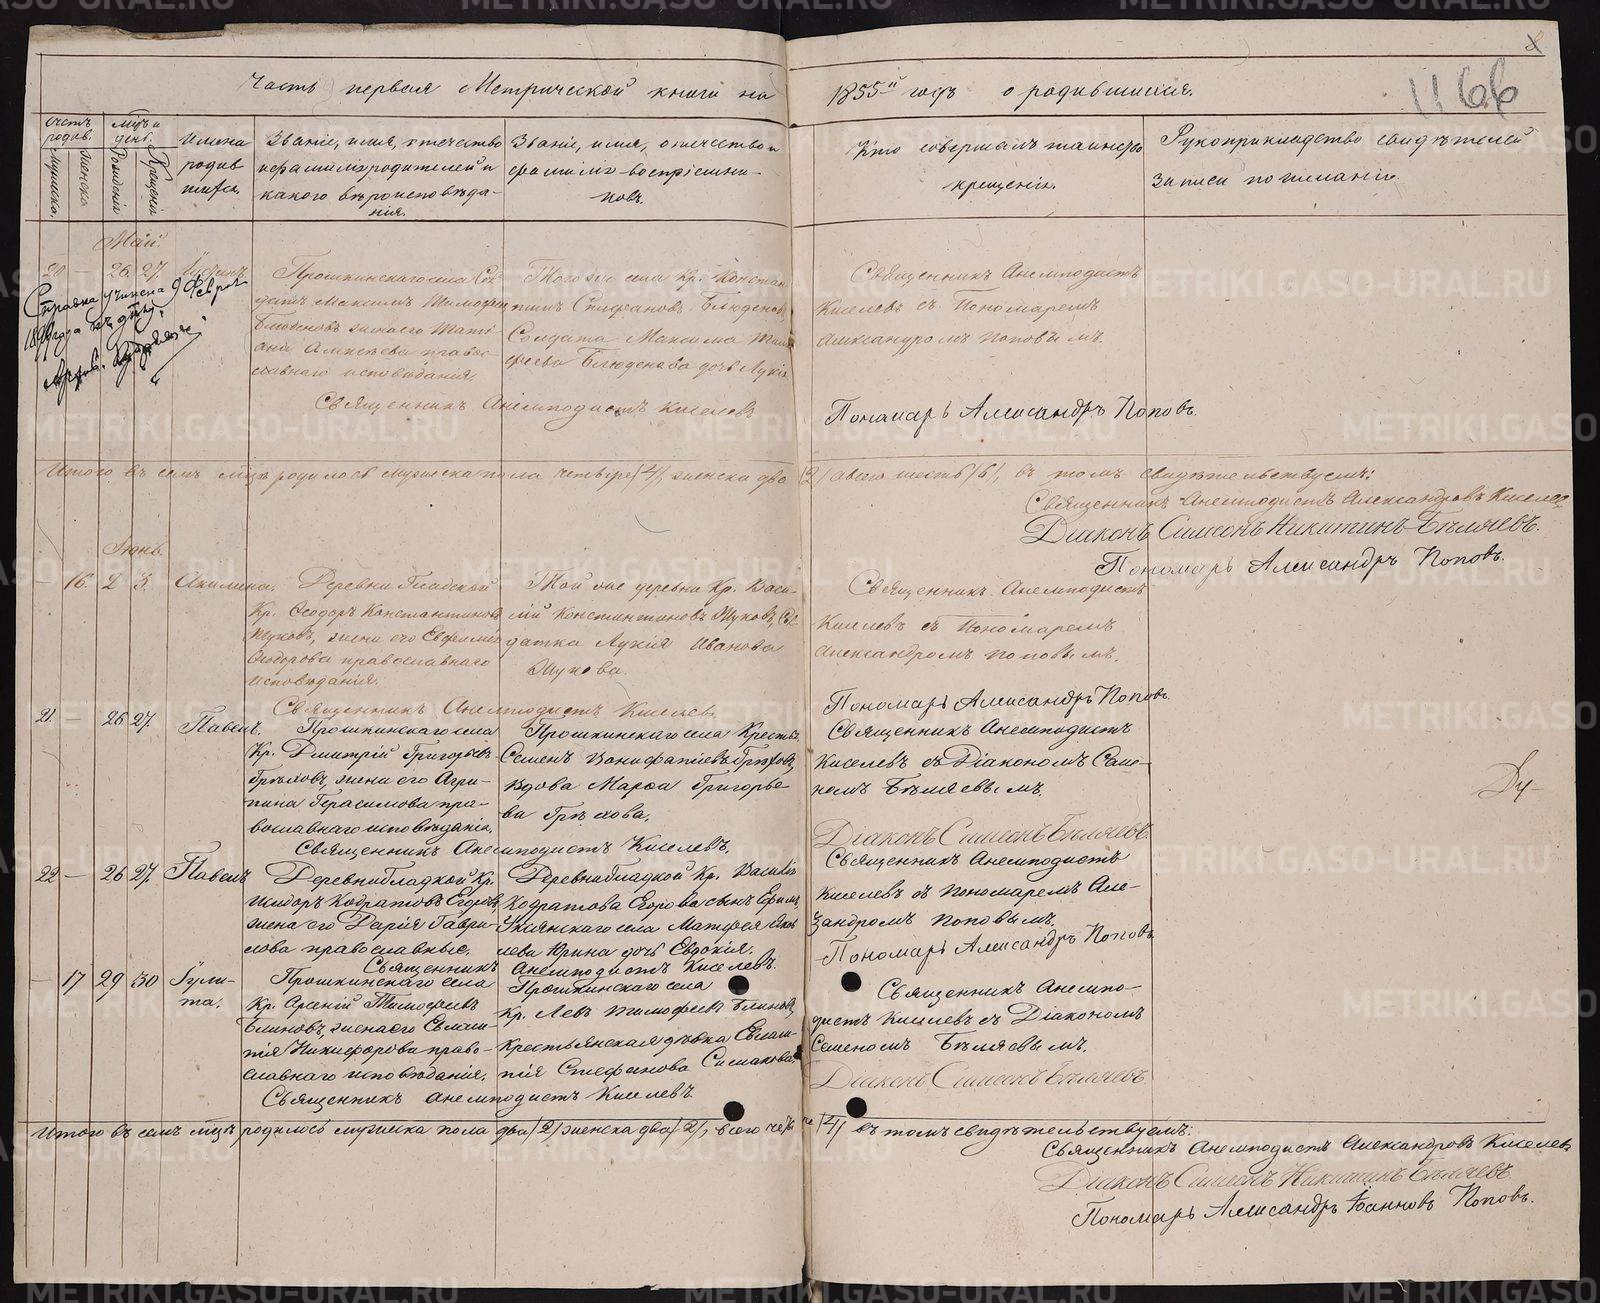 Часть первая Метрической книги на 1855й годъ о родившихся.
1166
Счетъ родив.
Мужеска.
Женска.
Мцъ и день.
Рожденія
Крещенія
Имена родив
шихся.
Званіе, имя, отечество
и фамилія родителей и
какого вѣроисповѣда-
нія.
Званіе, имя, отечество и
фамилія воспріемни-
ковъ.
Кто совершалъ таинство
крещенія.
Рукоприкладство свидѣтелей
записи по желанію
Май.
20 — 26. 27.
Справка учинена 9 Февр.
1899 года
Прошкинскаго села Сол-
датъ Максимъ Тимофеев
Блюденовъ жена его Тати-
ана Алексѣева правос-
лавнаго исповѣданія,
Того же села Кр. Констан
тинъ Стефановъ Блюденовъ
Солдата Максима Тимо
феева Блюденова дочь Лукія
Священникъ Анемподистъ
Киселевъ съ Пономаремъ
Александромъ Поповымъ.
Священникъ Анемподистъ Киселевъ
Пономарь Александръ Поповъ.
Итого въ семъ мцѣ родилось мужеска пола четыре /4/, женска два /2/ а всего шесть /6/, въ томъ свидѣтельствуемъ:
Священникъ Анемподистъ Александровъ Киселев
Діаконъ Симеонъ Никитинъ Бѣляевъ.
Пономарь Александръ Поповъ.
Іюнь.
— 16. 2 3. Акилина.
Деревни Гладской
Кр. Ѳеодоръ Константиновъ
Жуковъ, жена его Евфимія
Ѳедорова православнаго
исповѣданія.
Той же деревни Кр. Васи-
лій Константиновъ Жуковъ, Сол
датка Лукія Иванова
Жукова.
Священникъ Анемподистъ
Киселевъ съ Пономаремъ
Александромъ Поповымъ.
Священникъ Анемподистъ Киселев.
Пономарь Александръ Поповъ.
21. — 26 27. Павелъ.
Прошкинскаго села
Кр. Дмитрій Григорьевъ
Грѣховъ, жена его Агри-
пина Герасимова пра-
вославнаго исповѣданія,
Прошкинскаго села Крестьян
Семенъ Вонифатіевъ Грѣховъ,
Вдова Марѳа Григорье
ва Грѣхова.
Священникъ Анемподистъ
Киселевъ съ Діакономъ Симе-
номъ Бѣляевымъ.
Священникъ Анемподистъ Киселевъ,
Діаконъ Симеонъ Бѣляевъ
22 — 26 27. Павелъ
Деревни Гладкой Кр.
Исидоръ Кодратовъ Егоровъ,
жена его Дарія Гаври-
лова православные,
Деревни Гладкой Кр. Василій
Кодратова Егорова сынъ Ефимъ,
села Матфея Яков
лева Юрина дочь Евдокія.
Священникъ Анемподистъ
Киселевъ съ Пономаремъ Але-
ксандромъ Поповымъ,
Священникъ Анемподистъ Киселевъ.
Пономарь Александръ Поповъ
— 17 29 30 Іули-
та.
Прошкинскаго села
Кр. Арсеній Тимофеевъ
Блиновъ, жена его Евлам-
пія Никифорова право-
славнаго исповѣданія,
Прошкинскаго села
Кр. Левъ Тимофеевъ Блиновъ,
Крестьянская дѣвка Евлам-
пія Стефанова Симакова.
Священникъ Анемпо-
дистъ Киселевъ съ Діакономъ
Семеномъ Бѣляевымъ.
Священникъ Анемподистъ Киселевъ
Діаконъ Симеонъ Бѣляевъ
Итого въ семъ мцѣ родилось мужеска пола два /2/ женска два /2/, всего четыре /4/ въ томъ свидѣтельствуемъ.
Священникъ Анемподистъ Александровъ Киселев
Діаконъ Симеонъ Никитинъ Бѣляевъ
Пономарь Александръ Іоанновъ Поповъ.
METRIKI.GASO-URAL.RU